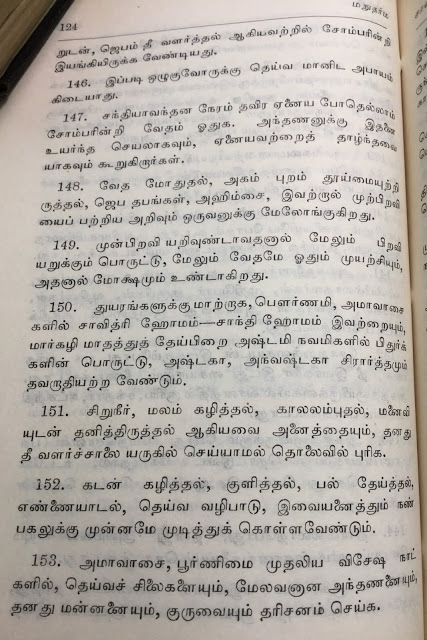 124
மநுதர்ம
றுடன், ஜெபம் தீ வளர்த்தல் ஆகியவற்றில் சோம்பரின்றி
இயங்கியிருக்க வேண்டியது.
146. இப்படி ஒழுகுவோருக்கு தெய்வ மானிட அபாயம்
கிடையாது.
147. சந்தியாவந்தன நேரம் தவிர ஏனைய போதெல்லாம்
சோம்பரின்றி வேதம் ஓதுக. அந்தணனுக்கு இதனை
உயர்ந்த செயலாகவும், ஏனையவற்றைத் தாழ்ந்தவை
யாகவும் கூறுகிறார்கள்.
148. வேத மோதுதல், அகம் புறம் தூய்மையுற்றி
ருத்தல், ஜெப தபங்கள், அஹிம்சை, இவற்றால் முற்பிறவி
யைப் பற்றிய அறிவும் ஒருவனுக்கு மேலோங்குகிறது.
149. முன்பிறவி யறிவுண்டாவதனால் மேலும் பிறவி
யறுக்கும் பொருட்டு, மேலும் வேதமே ஓதும் முயற்சியும்,
அதனால் மோக்ஷமும் உண்டாகிறது.
150. துயரங்களுக்கு மாற்றாக, பௌர்ணமி, அமாவாசை
களில் சாவித்ரி ஹோமம்—சாந்தி ஹோமம் இவற்றையும்,
மார்கழி மாதத்துத் தேய்பிறை அஷ்டமி நவமிகளில் பிதுர்க்
களின் பொருட்டு, அஷ்டகா, அந்வஷ்டகா சிரார்த்தமும்
தவறாதியற்ற வேண்டும்.
151. சிறுநீர், மலம் கழித்தல், காலலம்புதல், மனைவி
யுடன் தனித்திருத்தல் ஆகியவை அனைத்தையும், தனது
தீ வளர்ச்சாலை யருகில் செய்யாமல் தொலைவில் புரிக.
152. கடன் கழித்தல், குளித்தல், பல் தேய்த்தல்,
எண்ணெயாடல், தெய்வ வழிபாடு, இவையனைத்தும் நண்
பகலுக்கு முன்னமே முடித்துக் கொள்ளவேண்டும்.
153. அமாவாசை, பூர்ணிமை முதலிய விசேஷ நாட்
களில், தெய்வச் சிலைகளையும், மேலவனான அந்தணனையும்,
தனது மன்னனையும், குருவையும் தரிசனம் செய்க.